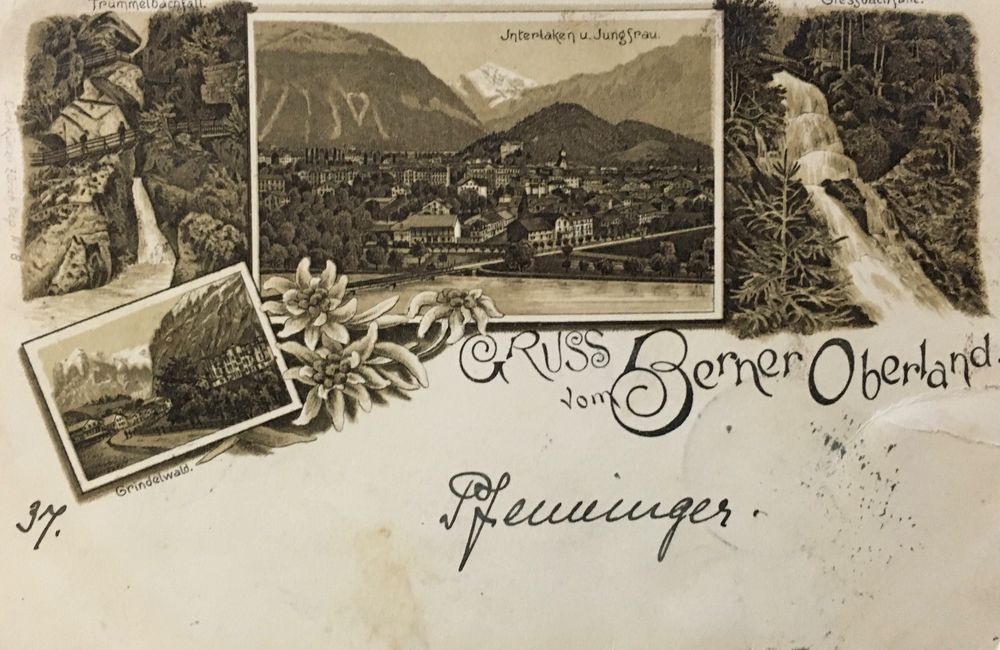 Trümmelbachfall.
Giessbachfälle.
Interlaken u. Jungfrau.
Gruss
vom Berner Oberland.
Grindelwald.
37.
Pfenninger.